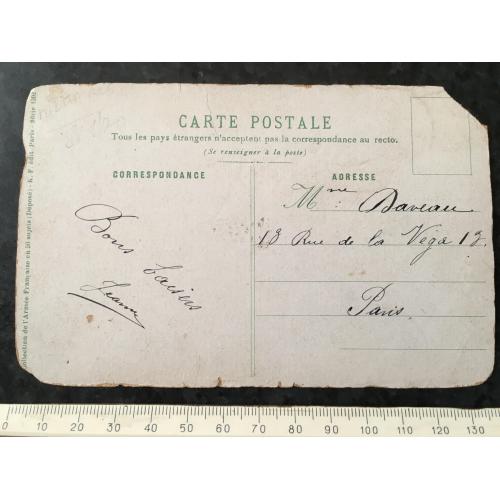 CARTE POSTALE
Tous les pays étrangers n'acceptent pas la correspondance au recto.
(Se renseigner à la poste)
CORRESPONDANCE
ADRESSE
Bons baisers
Jeanne
Mme: Daveau
13 Rue de la Véga 13.
Paris.
Collection de l'Armée Française en 26 sujets (Déposé) - K. F. édit. Paris - Série
0 10 20 30 40 50 60 70 80 90 100 110 120 130